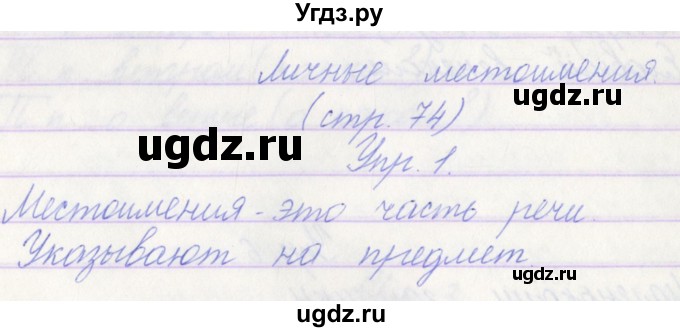 Угдз.ру
Личные местоимения.
ugdz.ru
(стр. 74)
ugdz.ru
Упр. 1.
Местоимения - это часть речи.
Указывают на предмет.
ugdz.ru
ugdz.ru